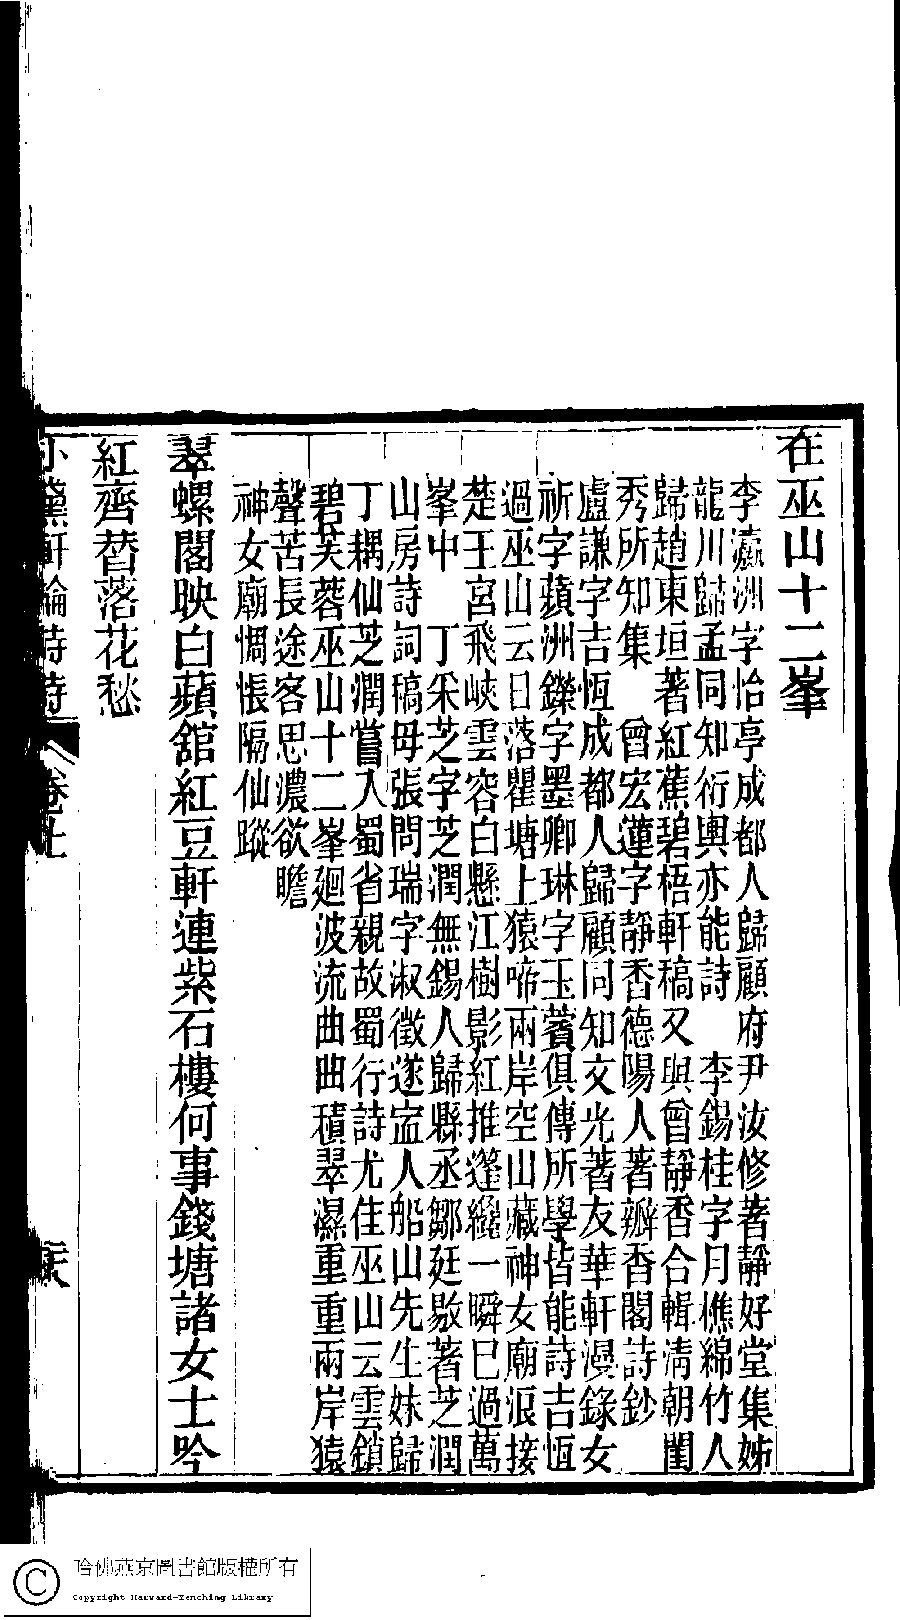 在巫山十二峯
李瀛洲字怡亭成都人歸顧府尹汝修著靜好堂集姊
龍川歸孟同知衍輿亦能詩　李錫桂字月樵綿竹人
歸趙東垣著紅蕉碧梧軒稿又與曾靜香合輯淸朝閨
秀所知集　曾宏蓮字靜香德陽人著瓣香閣詩鈔
盧謙字吉恆成都人歸顧同知文光著友華軒漫錄女
祈字蘋洲鑠字墨卿琳字玉薲俱傳所學皆能詩吉恆
過巫山云日落瞿塘上猿啼兩岸空山藏神女廟浪接
楚王宮飛峽雲容白懸江樹影紅推蓬纔一瞬已過萬
峯中　丁采芝字芝潤無錫人歸縣丞鄒廷敭著芝潤
山房詩詞稿母張問瑞字淑徵遂寍人船山先生妹歸
丁耦仙芝潤嘗入蜀省親故蜀行詩尤佳巫山云雲鎖
碧芙蓉巫山十二峯廻波流曲曲積翠濕重重兩岸猿
聲苦長途客思濃欲瞻
神女廟惆悵隔仙蹤
翠螺閣映白蘋舘紅豆軒連紫石樓何事錢塘諸女士吟
紅齊替落花愁
小黛軒論詩詩　卷上　三六
哈佛燕京圖書館版權所有
Copyright Harvard-Yenching Library